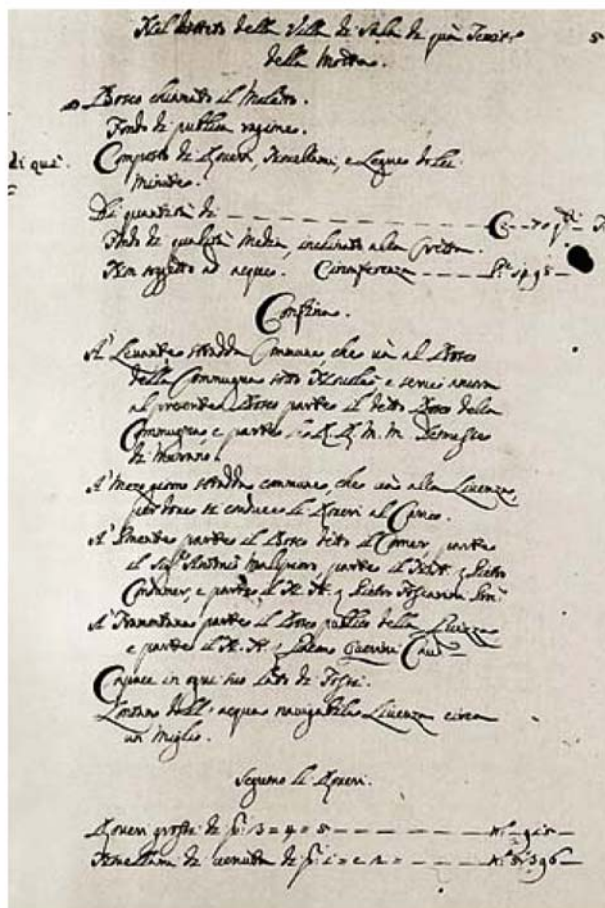 Nel distreto della Villa di Sala di quà Tenir
della Motta.
5
Bosco chiamato il Maletto.
Fondo di publica ragione.
di quà.
Composto di Roveri, Novellami, e Legne dolci
minute.
Di quantità di C. 70
Fondo di qualità media, inclinato alla
Non soggetto ad acque. Circonferenza
Confina.
A' Levante stradda Commune, che và al Bosco
della Commugna sotto e serve ancora
al presente Bosco parte il detto Bosco della
Commugna, e parte R. R. M. M.
di Murano.
A' Mezo giorno stradda commune, che và alla Livenza,
per dove si conduce li Roveri al Carico.
A' Ponente parte il Bosco detto il Corner, parte
il Sig.r Antonio parte il N. H. Pietro
e parte il N. H. Pietro Foscarini
A' Tramontana parte il Bosco publico della
e parte il N. H. Querini
Capace in ogni suo lato di Fossi.
Lontano dall' acqua navigabile Livenza circa
un miglio.
Seguono li Roveri.
Roveri grossi di p. 3 = 4 = 5 N.º
Novellami di di p. 1 = e 2 = N.º